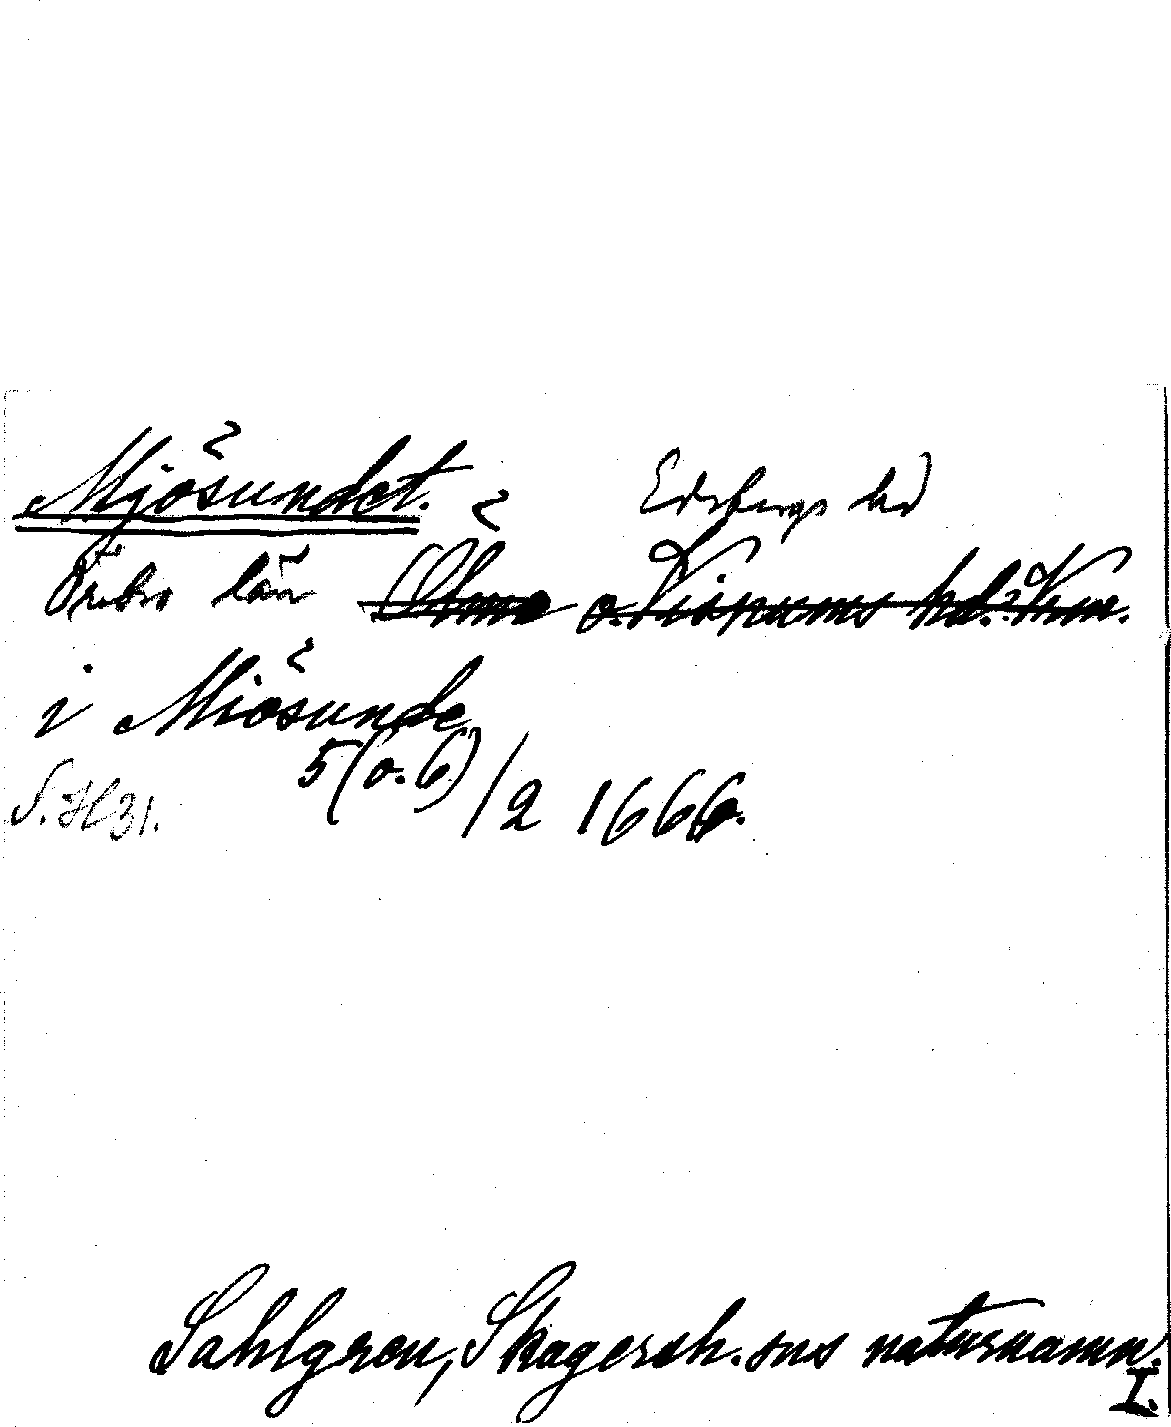 Mjösundet.
Edsbergs hd
Örebro län Ölme o. Visnums hd. Vrm.
i Miösunde
5(o. 6)/2 1666.
S. H 31.
Sahlgren, Skagersh. sns naturnamn.
I.